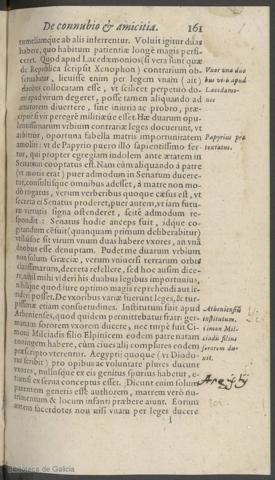 De connubio & amicitia. 161
tumeliamque ab aliis inferrentur. Voluit igitur duas
habere, quo habitum patientiæ longè magis perfi-
ceret. Quod apud Lacedæmonios (si vera sunt quæ
de Republica scripsit Xenophon) contrarium ob-
seruabatur, licuisse enim per legem vnam (ait)
duobus collocatam esse, vt scilicet perpetuò do-
mi apud virum degeret, posse tamen aliquando ad
amatorem diuertere, sine iniuria ac probro, præ-
cipuè si vir peregrè militiæ esset. Hæ duarum opu-
lentissimarum vrbium contrariæ leges docuerunt, vt
arbitror, oportuna fabella matris importunitatem
amoliri: vt de Papyrio puero illo sapientissimo fer-
tur, qui propter egregiam indolem ante ætatem in
Senatum cooptatus est. Nam cùm aliquando à patre
(vt moris erat) puer admodum in Senatum ducere-
tur, consultisque omnibus adesset, à matre non mo-
dò rogatus, verum verberibus quoque cæsus est, vt
secreta ei Senatus proderet, puer autem, vt iam futu-
ræ virtutis signa ostenderet, scitè admodum re-
spondit: Senatus hodie anceps fuit, idque co-
gendum censuit (quanquam primum deliberabitur)
vtiliúsne sit virum vnum duas habere vxores, an vnã
duobus esse denuptam. Pudet me duarum vrbium
non solum Græciæ, verum vniuersi terrarum orbis
clarissimarum, decreta refellere, sed hoc ausim dice-
re, nihil mihi videri his duabus legibus importunius,
nihilque quod iure optimo magis reprehendi aut ir-
rideri posset. De vxoribus variæ fuerunt leges, & tur-
pissimæ etiam consuetudines. Institutum fuit apud
Athenienses, quod quidem permittebatur fratri ger-
manam sororem vxorem ducere, nec turpe fuit Ci-
moni Milciadis filio Elpinicem eodem patre natam
coniugem habere, cùm ciues alij complures eodem
præscripto vterentur. Aegyptij quoque (vt Diodo-
rus scribit) pro opibus ac voluntate plures ducunt
vxores, nullúsque ex eis genitus spurius habetur, e-
tiamsi ex serua conceptus esset. Dicunt enim solum
parentem generis esse authorem, matrem verò nu-
trimentum & locum infanti præbere aiunt. Eorum
autem sacerdotes non nisi vnam per leges ducere
Vxor vna duo
bus viris apud
Lacedæmo-
nios
Papyrius præ
textatus.
Atheniensiũ
institutum.
Cimon Mil-
ciadis filius
sororem du-
xit.
Biblioteca de Galicia